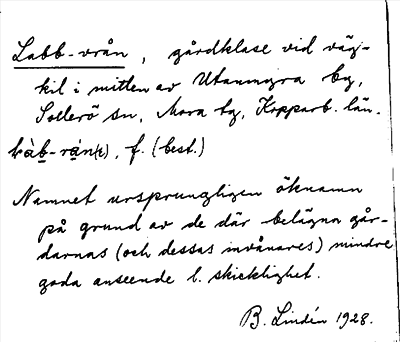 Labb-vrån, gårdklase vid väg-
kil i mitten av Utanmyra by,
Sollerö sn, Mora tg, Kopparb. län.
f. (best.)
Namnet ursprungligen öknamn
på grund av de där belägna går-
darnas (och dessas invånares) mindre
goda anseende l. skicklighet.
B. Lindén 1928.